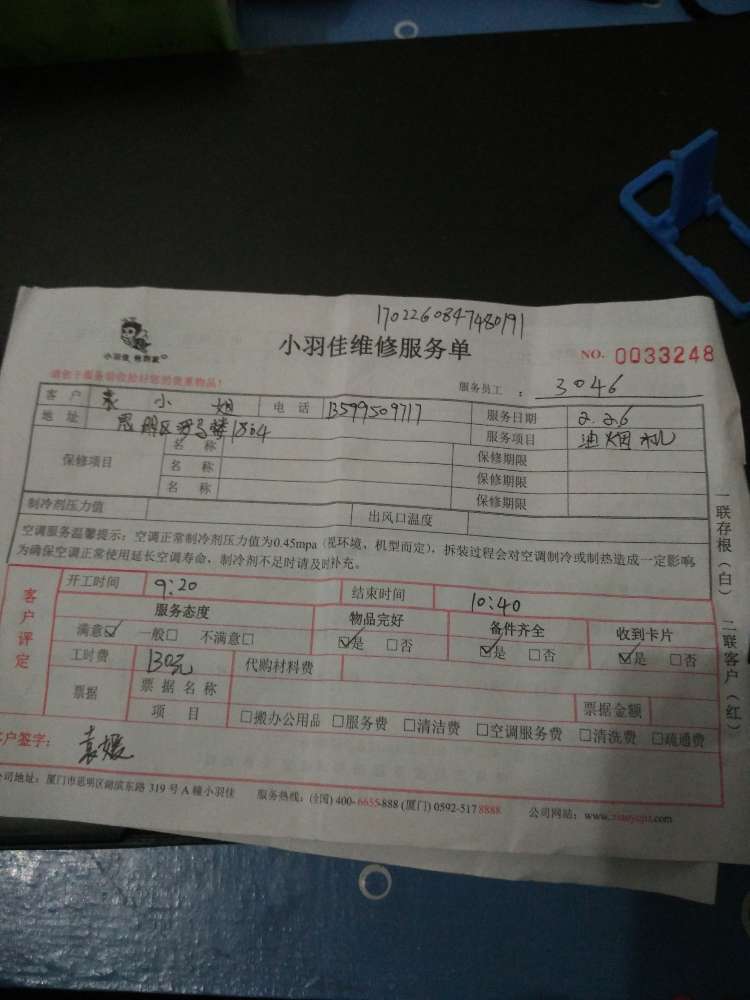 1702260847480191
小羽佳维修服务单
NO. 0033248
小羽佳 爸到家
服务员工 ： 3046
客 户 袁小姐 电 话 13599509717 服务日期 2.26
地 址 思明区 1804 服务项目 油烟机
保修项目 名 称 保修期限
名 称 保修期限
名 称 保修期限
制冷剂压力值 出风口温度
空调服务温馨提示：空调正常制冷剂压力值为0.45mpa（视环境、机型而定），拆装过程会对空调制冷或制热造成一定影响
为确保空调正常使用延长空调寿命，制冷剂不足时请及时补充。
一联存根（白） 二联客户（红）
客户评定
开工时间 9:20 结束时间 10:40
服务态度 物品完好 备件齐全 收到卡片
满意☑ 一般□ 不满意□ ☑是 □否 ☑是 □否 ☑是 □否
工时费 130元 代购材料费
票据 票据名称
项 目 □搬办公用品 □服务费 □清洁费 □空调服务费 □清洗费 □疏通费
票据金额
客户签字： 袁媛
公司地址：厦门市思明区湖滨东路 319 号 A 幢小羽佳 服务热线：(全国) 400-6655-888 (厦门) 0592-5178888 公司网站：www.xiaoyujia.com